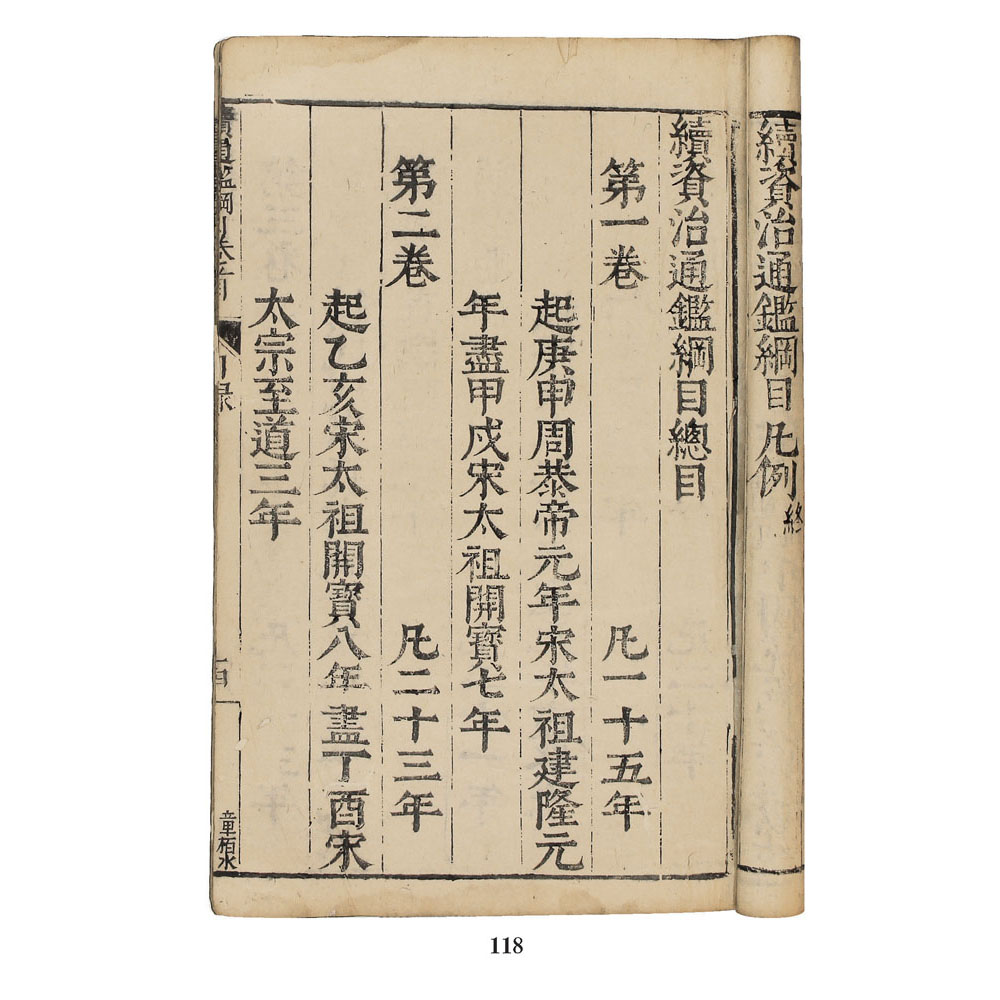 續資治通鑑綱目凡例終
續資治通鑑綱目總目
第一卷 凡一十五年
起庚申周恭帝元年宋太祖建隆元
年盡甲戌宋太祖開寶七年
第二卷 凡二十三年
起乙亥宋太祖開寶八年盡丁酉宋
太宗至道三年
目錄
童栢水
118